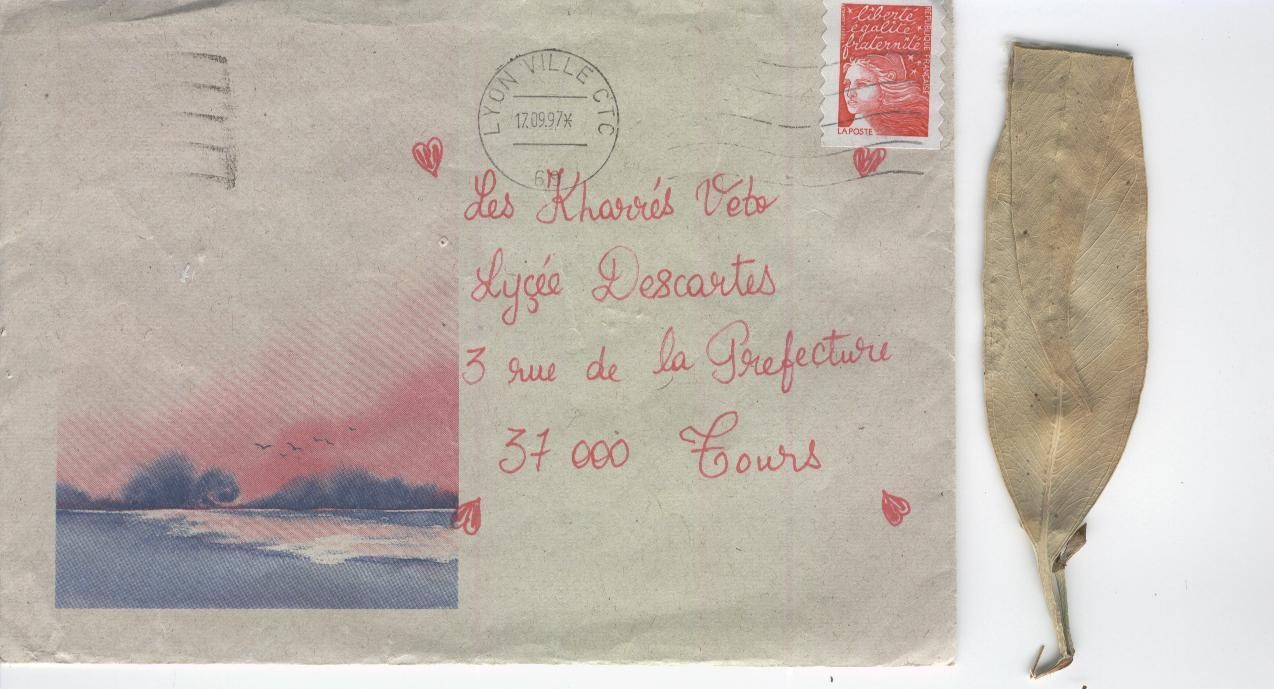 liberté
égalité
fraternité
RÉPUBLIQUE FRANÇAISE
LA POSTE
LYON VILLE CTC
17.09.97*
69
Les Kharrés Veto
Lyçée Descartes
3 rue de la Prefecture
37 000 Tours